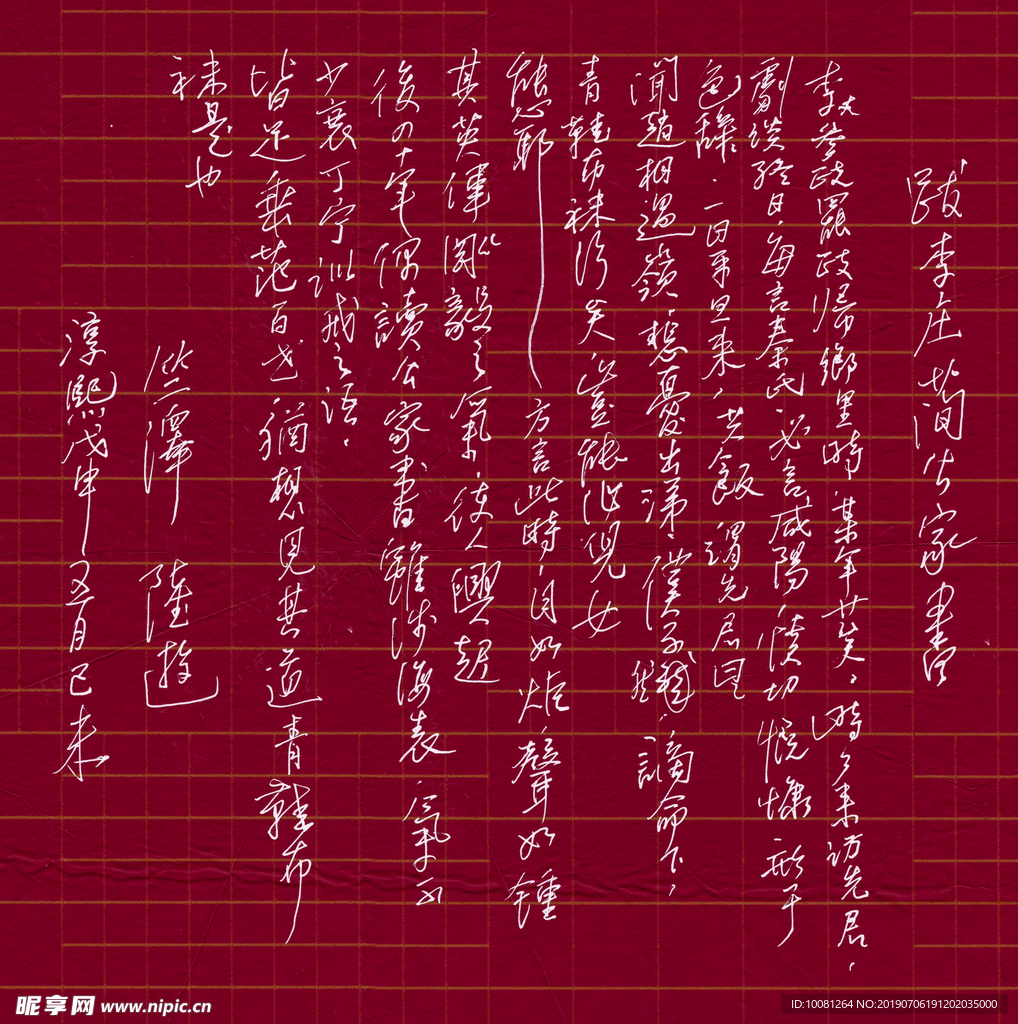 跋李莊简公家書
李丈參政罷政歸鄉里時某年廿矣、時々来訪先君,
劇談終日,每言秦氏必言咸陽,憤切慨慷形于
色辭.一日平旦来,共飯謂先君曰
聞趙相過嶺悲憂出涕.僕不然,謫命下,
青鞋布襪行矣豈能作兒女
態耶方言此時,目如炬,聲如鍾
其英偉剛毅之氣,使人興起
後四十年偶讀公家書雖涉海表,氣不
少衰丁宁訓戒之語.
皆足垂范百世,猶想見其道青鞋布
襪是也
笠澤 陸游
淳熙戊申五月己未
昵享网 www.nipic.cn
ID:10081264 NO:20190706191202035000